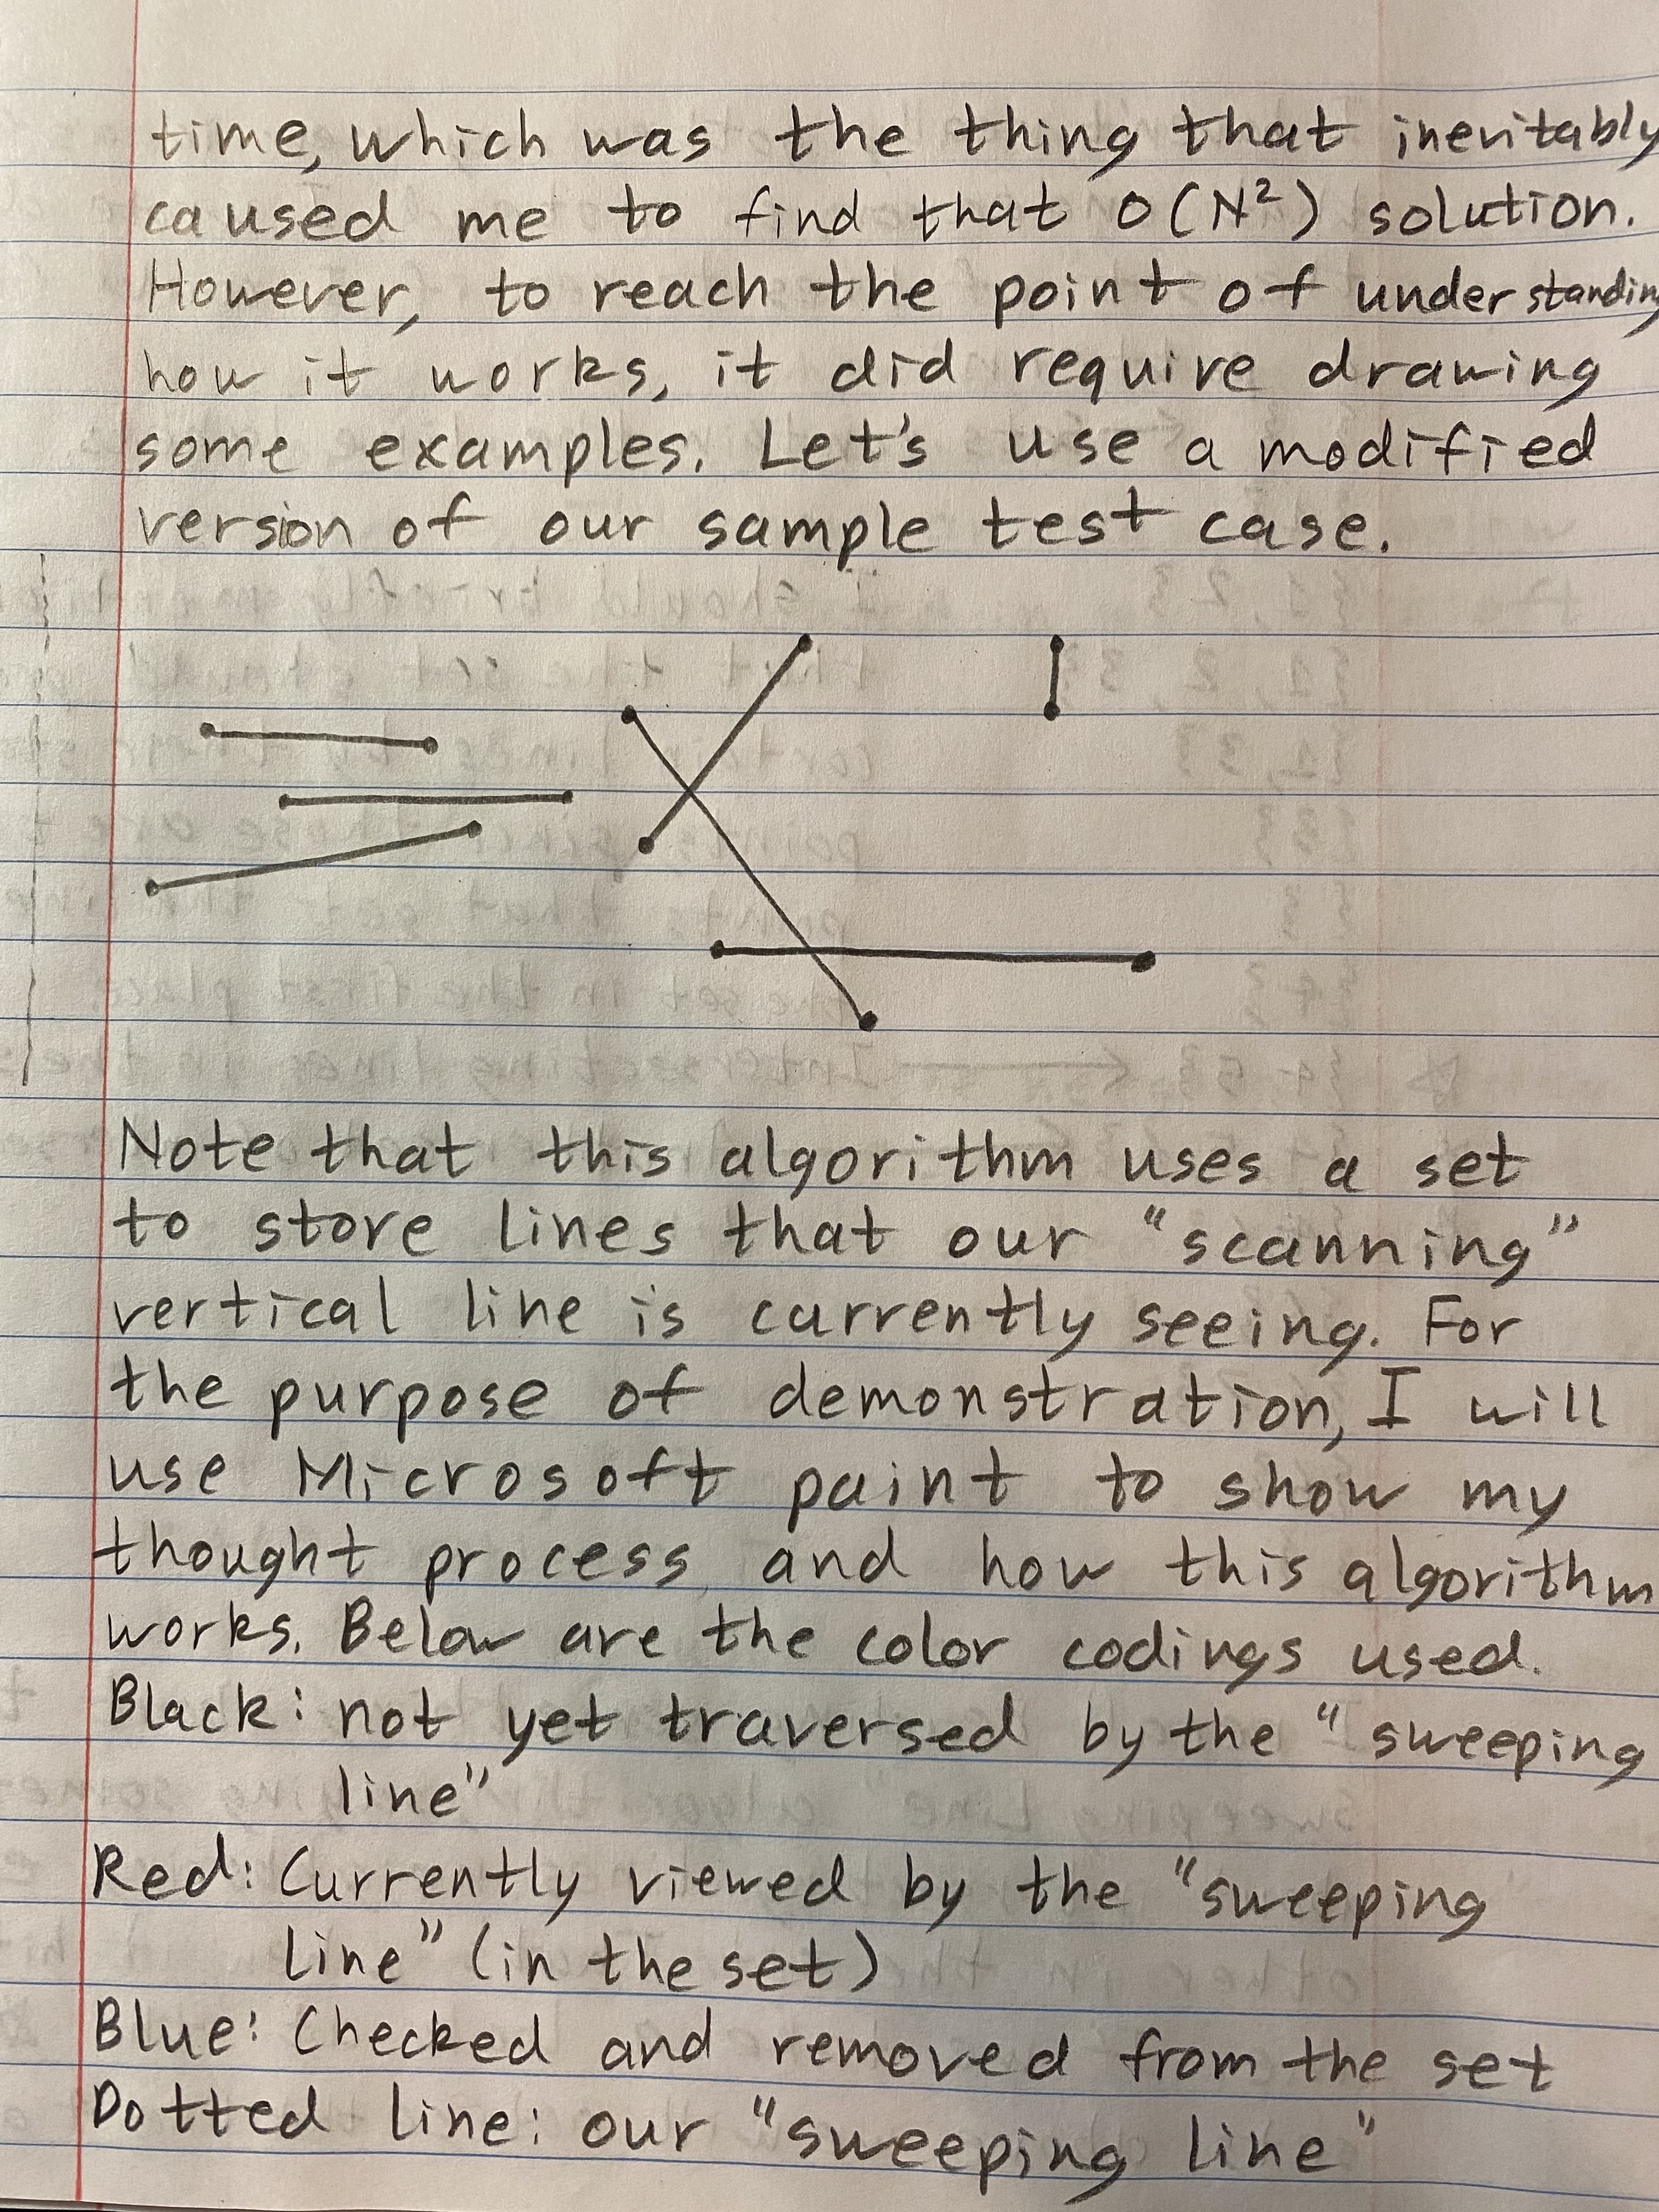 time, which was the thing that inevitably
caused me to find that O(N²) solution.
However, to reach the point of understanding
how it works, it did require drawing
some examples. Let's use a modified
version of our sample test case.
Note that this algorithm uses a set
to store lines that our "scanning"
vertical line is currently seeing. For
the purpose of demonstration, I will
use Microsoft paint to show my
thought process and how this algorithm
works. Below are the color codings used.
Black: not yet traversed by the "sweeping
line"
Red: Currently viewed by the "sweeping
line" (in the set)
Blue: Checked and removed from the set
Dotted line: our "sweeping line"